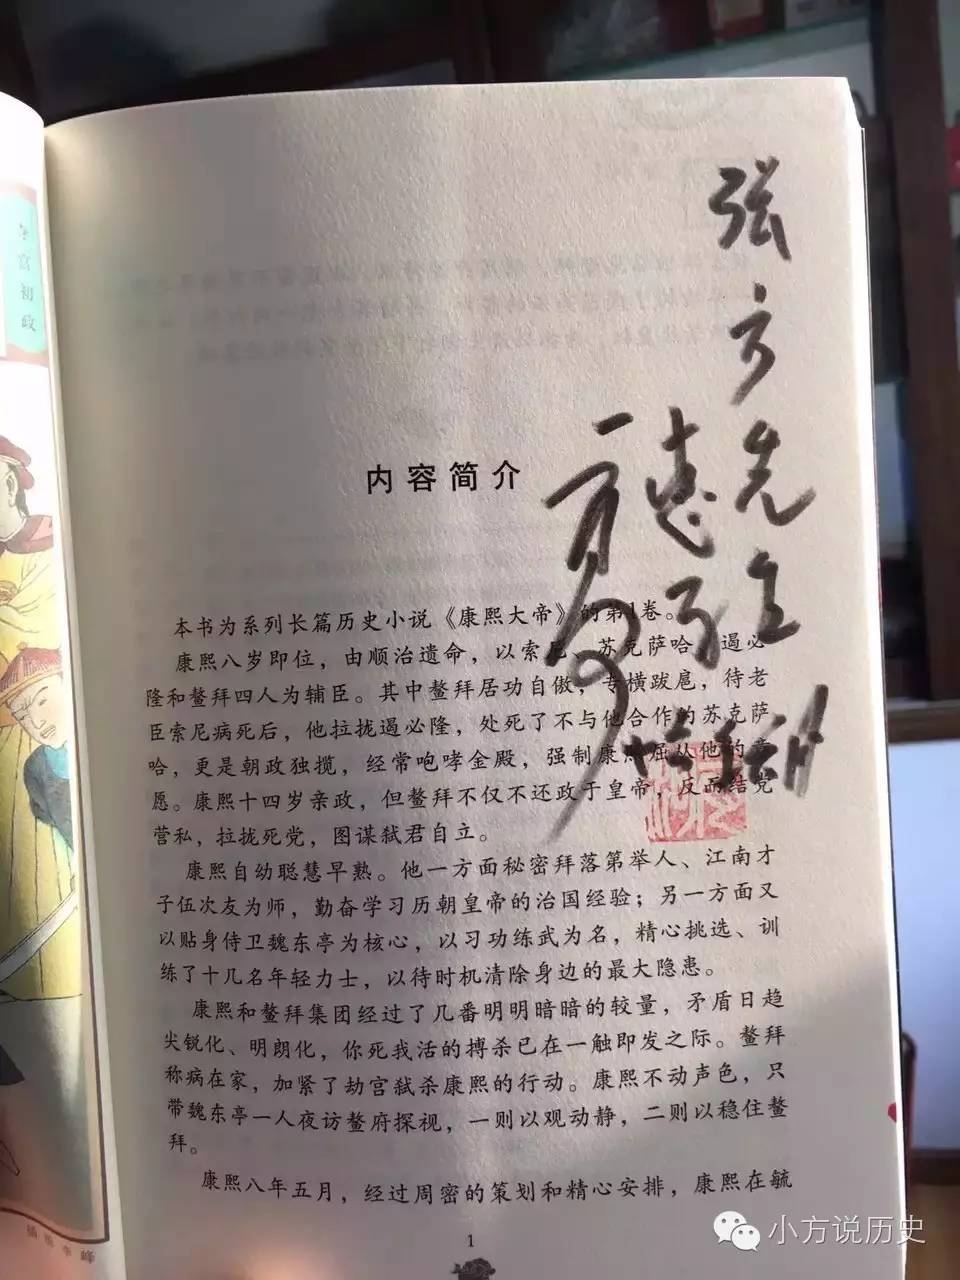 夺宫初政
张方先生
惠存
内容简介
本书为系列长篇历史小说《康熙大帝》的第1卷。
康熙八岁即位，由顺治遗命，以索尼、苏克萨哈、遏必
隆和鳌拜四人为辅臣。其中鳌拜居功自傲，专横跋扈，待老
臣索尼病死后，他拉拢遏必隆，处死了不与他合作的苏克萨
哈，更是朝政独揽，经常咆哮金殿，强制康熙屈从他的意
愿。康熙十四岁亲政，但鳌拜不仅不还政于皇帝，反而结党
营私，拉拢死党，图谋弑君自立。
康熙自幼聪慧早熟。他一方面秘密拜落第举人、江南才
子伍次友为师，勤奋学习历朝皇帝的治国经验；另一方面又
以贴身侍卫魏东亭为核心，以习功练武为名，精心挑选、训
练了十几名年轻力士，以待时机清除身边的最大隐患。
康熙和鳌拜集团经过了几番明明暗暗的较量，矛盾日趋
尖锐化、明朗化，你死我活的搏杀已在一触即发之际。鳌拜
称病在家，加紧了劫宫弑杀康熙的行动。康熙不动声色，只
带魏东亭一人夜访鳌府探视，一则以观动静，二则以稳住鳌
拜。
康熙八年五月，经过周密的策划和精心安排，康熙在毓
1
小方说历史